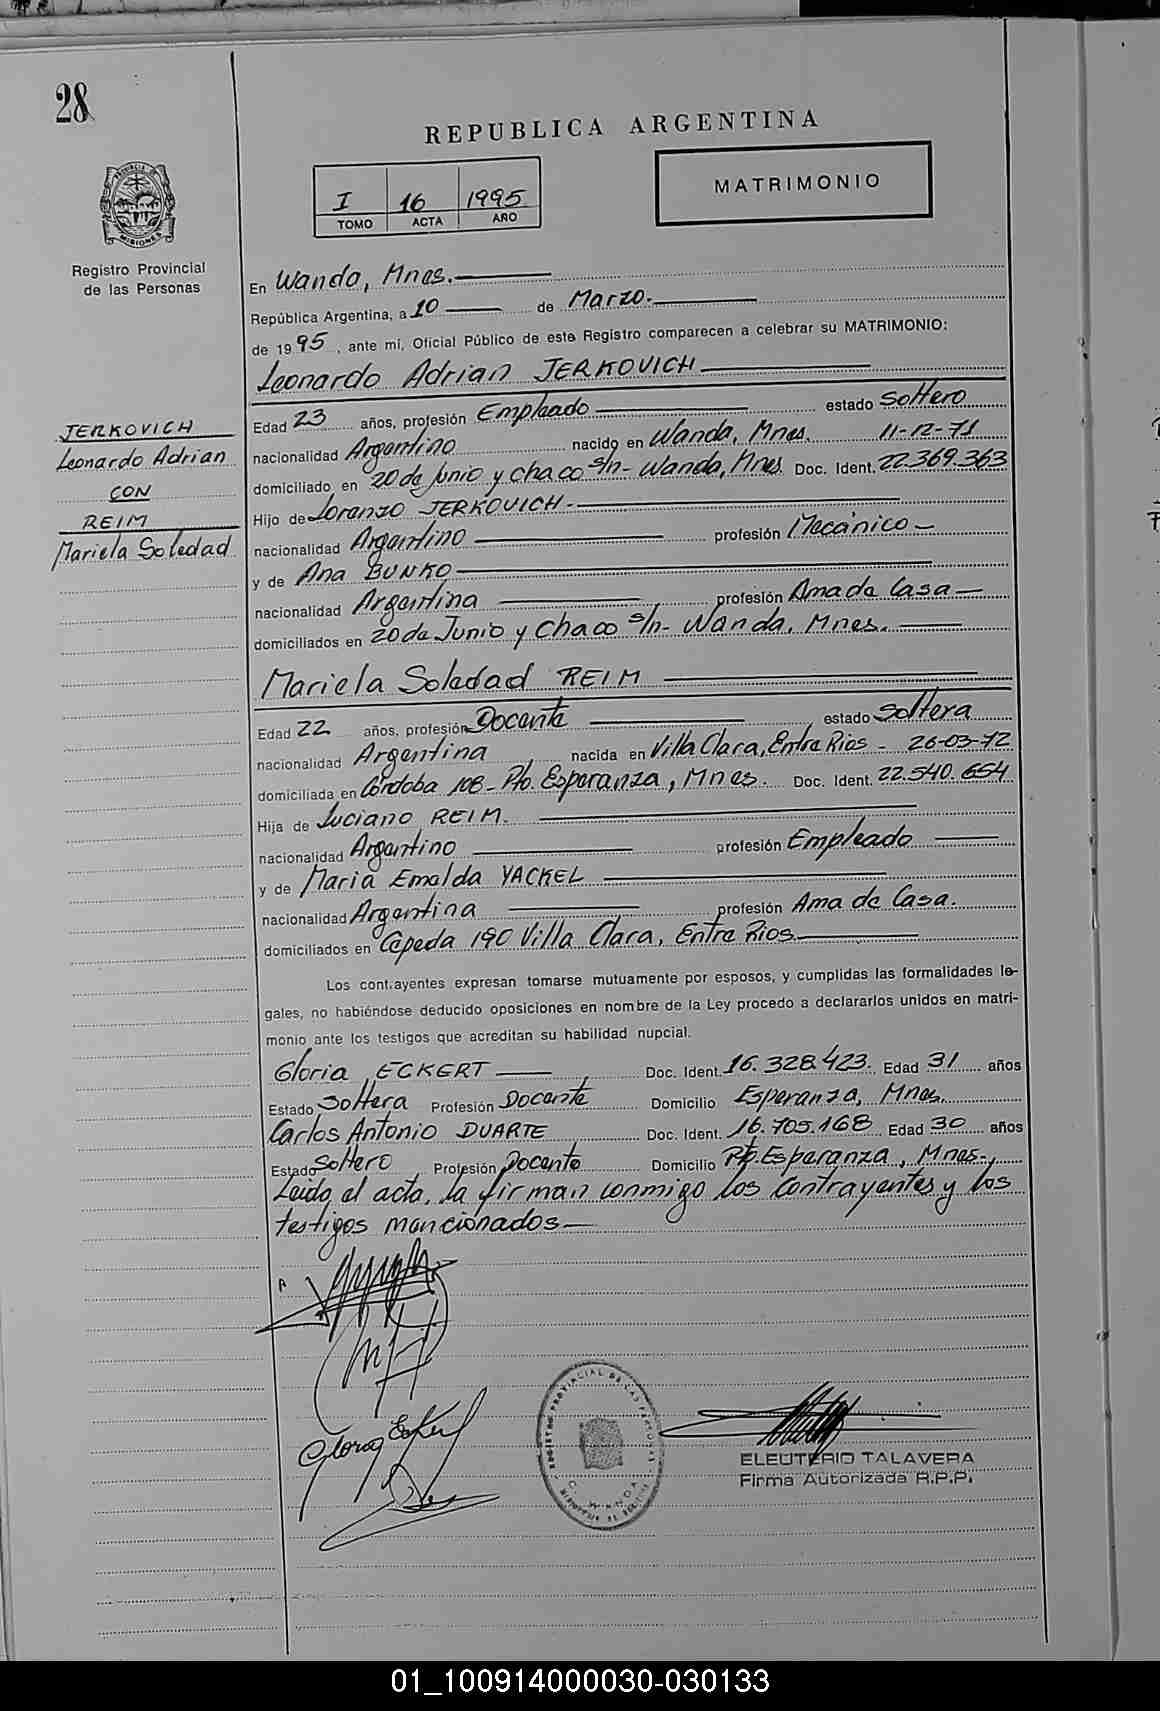 28
REPUBLICA ARGENTINA
I 16 1995
TOMO ACTA AÑO
MATRIMONIO
PROVINCIA DE MISIONES
Registro Provincial
de las Personas
JERKOVICH
Leonardo Adrian
CON
REIM
Mariela Soledad
En Wanda, Mnes.
República Argentina, a 10 de Marzo.
de 1995, ante mí, Oficial Público de este Registro comparecen a celebrar su MATRIMONIO:
Leonardo Adrian JERKOVICH
Edad 23 años, profesión Empleado estado Soltero
nacionalidad Argentino nacido en Wanda, Mnes. 11-12-71
domiciliado en 20 de Junio y Chaco s/n- Wanda, Mnes. Doc. Ident. 22.369.363
Hijo de Loranzo JERKOVICH.-
nacionalidad Argentino profesión Mecánico
y de Ana BUNKO
nacionalidad Argentina profesión Ama de Casa
domiciliados en 20 de Junio y Chaco s/n- Wanda, Mnes.
Mariela Soledad REIM
Edad 22 años, profesión Docente estado Soltera
nacionalidad Argentina nacida en Villa Clara, Entre Rios - 26-03-72
domiciliada en Córdoba 108- Pto. Esperanza, Mnes. Doc. Ident. 22.540.654
Hija de Luciano REIM.
nacionalidad Argentino profesión Empleado
y de Maria Emalda YACKEL
nacionalidad Argentina profesión Ama de Casa.
domiciliados en Cepeda 190 Villa Clara, Entre Rios
Los cont.ayentes expresan tomarse mutuamente por esposos, y cumplidas las formalidades le-
gales, no habiéndose deducido oposiciones en nombre de la Ley procedo a declararlos unidos en matri-
monio ante los testigos que acreditan su habilidad nupcial.
Gloria ECKERT Doc. Ident. 16.328.423. Edad 31 años
Estado Soltera Profesión Docente Domicilio Esperanza, Mnes.
Carlos Antonio DUARTE Doc. Ident. 16.705.168 Edad 30 años
Estado Soltero Profesión Docente Domicilio Pto. Esperanza, Mnes.
Leida el acta, la firman conmigo los contrayentes y los
testigos mencionados
Gloria Eckert
REGISTRO PROVINCIAL DE LAS PERSONAS
WANDA
ELEUTERIO TALAVERA
Firma Autorizada R.P.P.
01_100914000030-030133